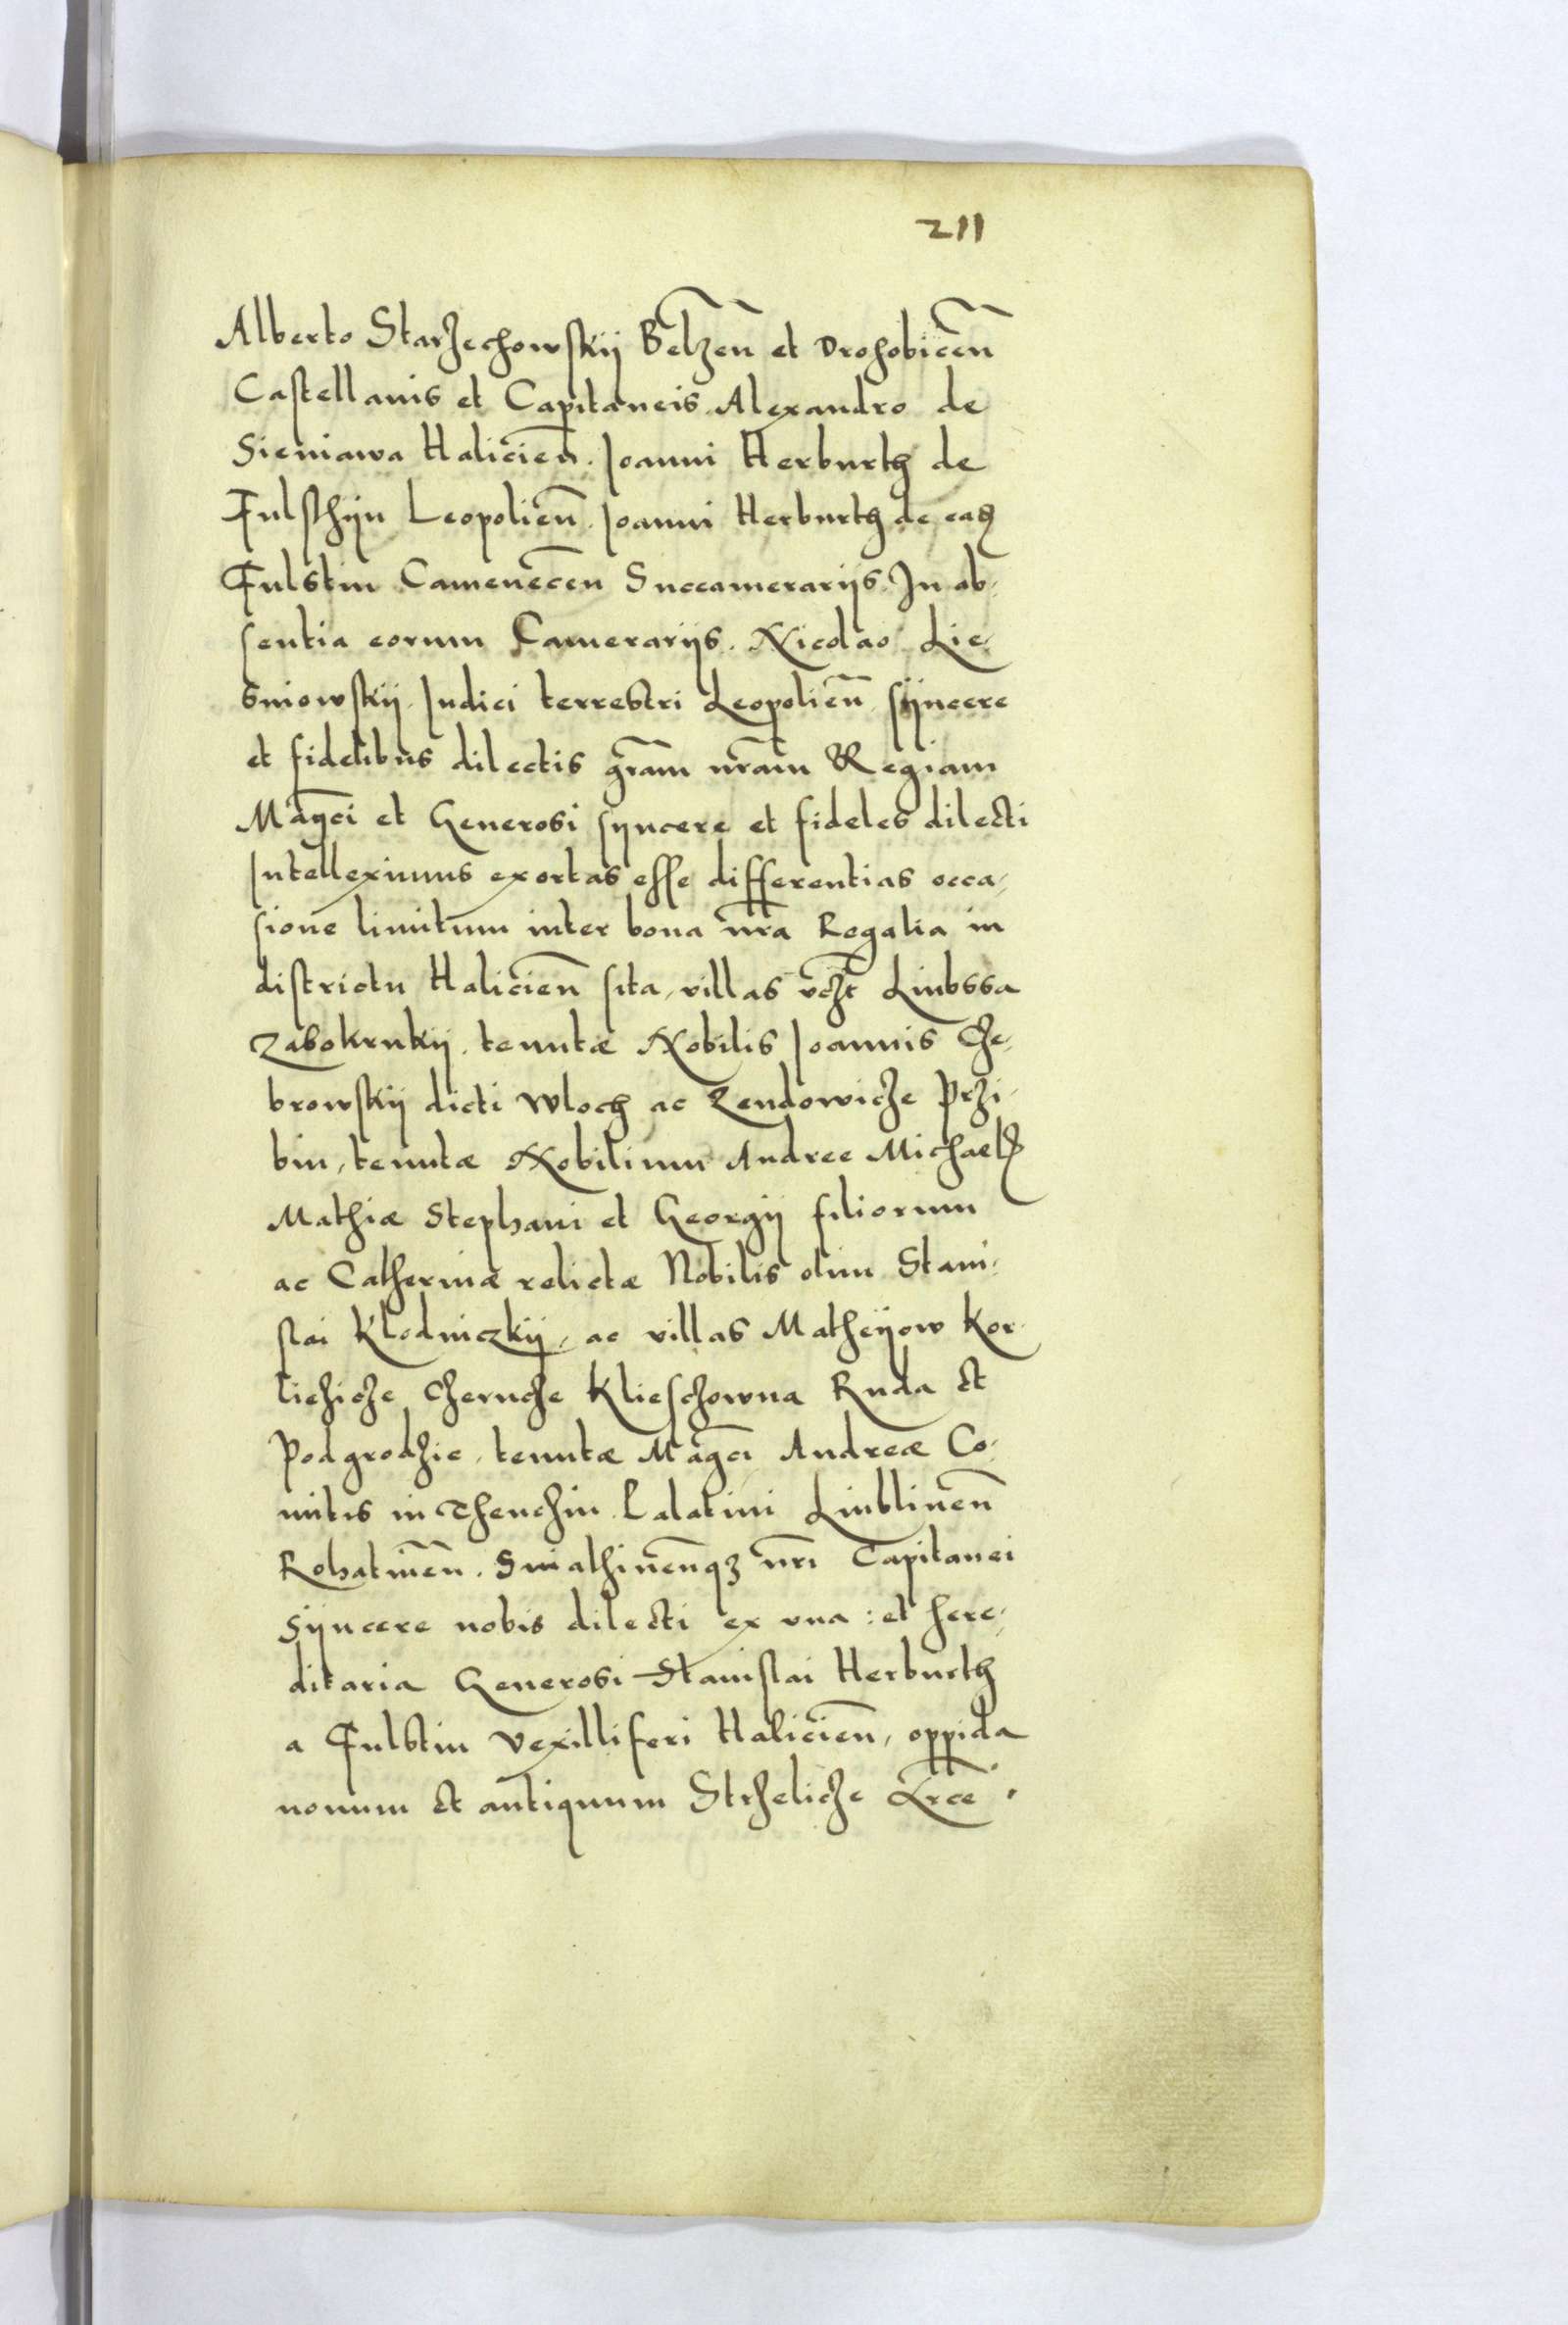 211
Alberto Starzechowskij Belzen̄ et Drohobicen̄
Castellanis et Capitaneis Alexandro de
Sieniawa Halicien̄. Joanni Herburth de
Fulsthijn Leopolien̄. Joanni Herburth de
Fulstin Camenecen̄ Succamerarijs. In ab,
sentia eorum Camerarijs. Nicolao Lie,
sniowskij. Judici terrestri Leopolien̄ sÿncere
et fidelibus dilectis gr̄am nr̄am Regiam
Maḡci et Generosi sÿncere et fideles dilecti
Intelleximus exortas esse differentias occa,
sione limitum inter bona nr̄a Regalia in
districtu Halicien̄ sita, villas Liubssa
Zabokrukij, tenutæ Nobilis Joannis Che,
browskij dicti Wloch ac Zendowicze Przi,
bin, tenutæ Nobilium Andree Michaelis
Mathiæ Stephani et Georgij filiorum
ac Catherinæ relictæ Nobilis olim Stani,
slai Klodniczkij, ac villas Matheÿow Kor,
liczicze Chernche Klieschowna Ruda et
Podgrodzie, tenutæ Maḡci Andreæ Co,
mitis in Thenchin Palatini Liublinen̄
Rohatinen̄. Sniathinen̄qz nr̄i Capitanei
sÿncere nobis dilecti ex una : et here,
ditaria Generosi Stanislai Herburth
a Fulstin Vexilliferi Halicien̄, oppida
nouum et antiquum Strzelicze